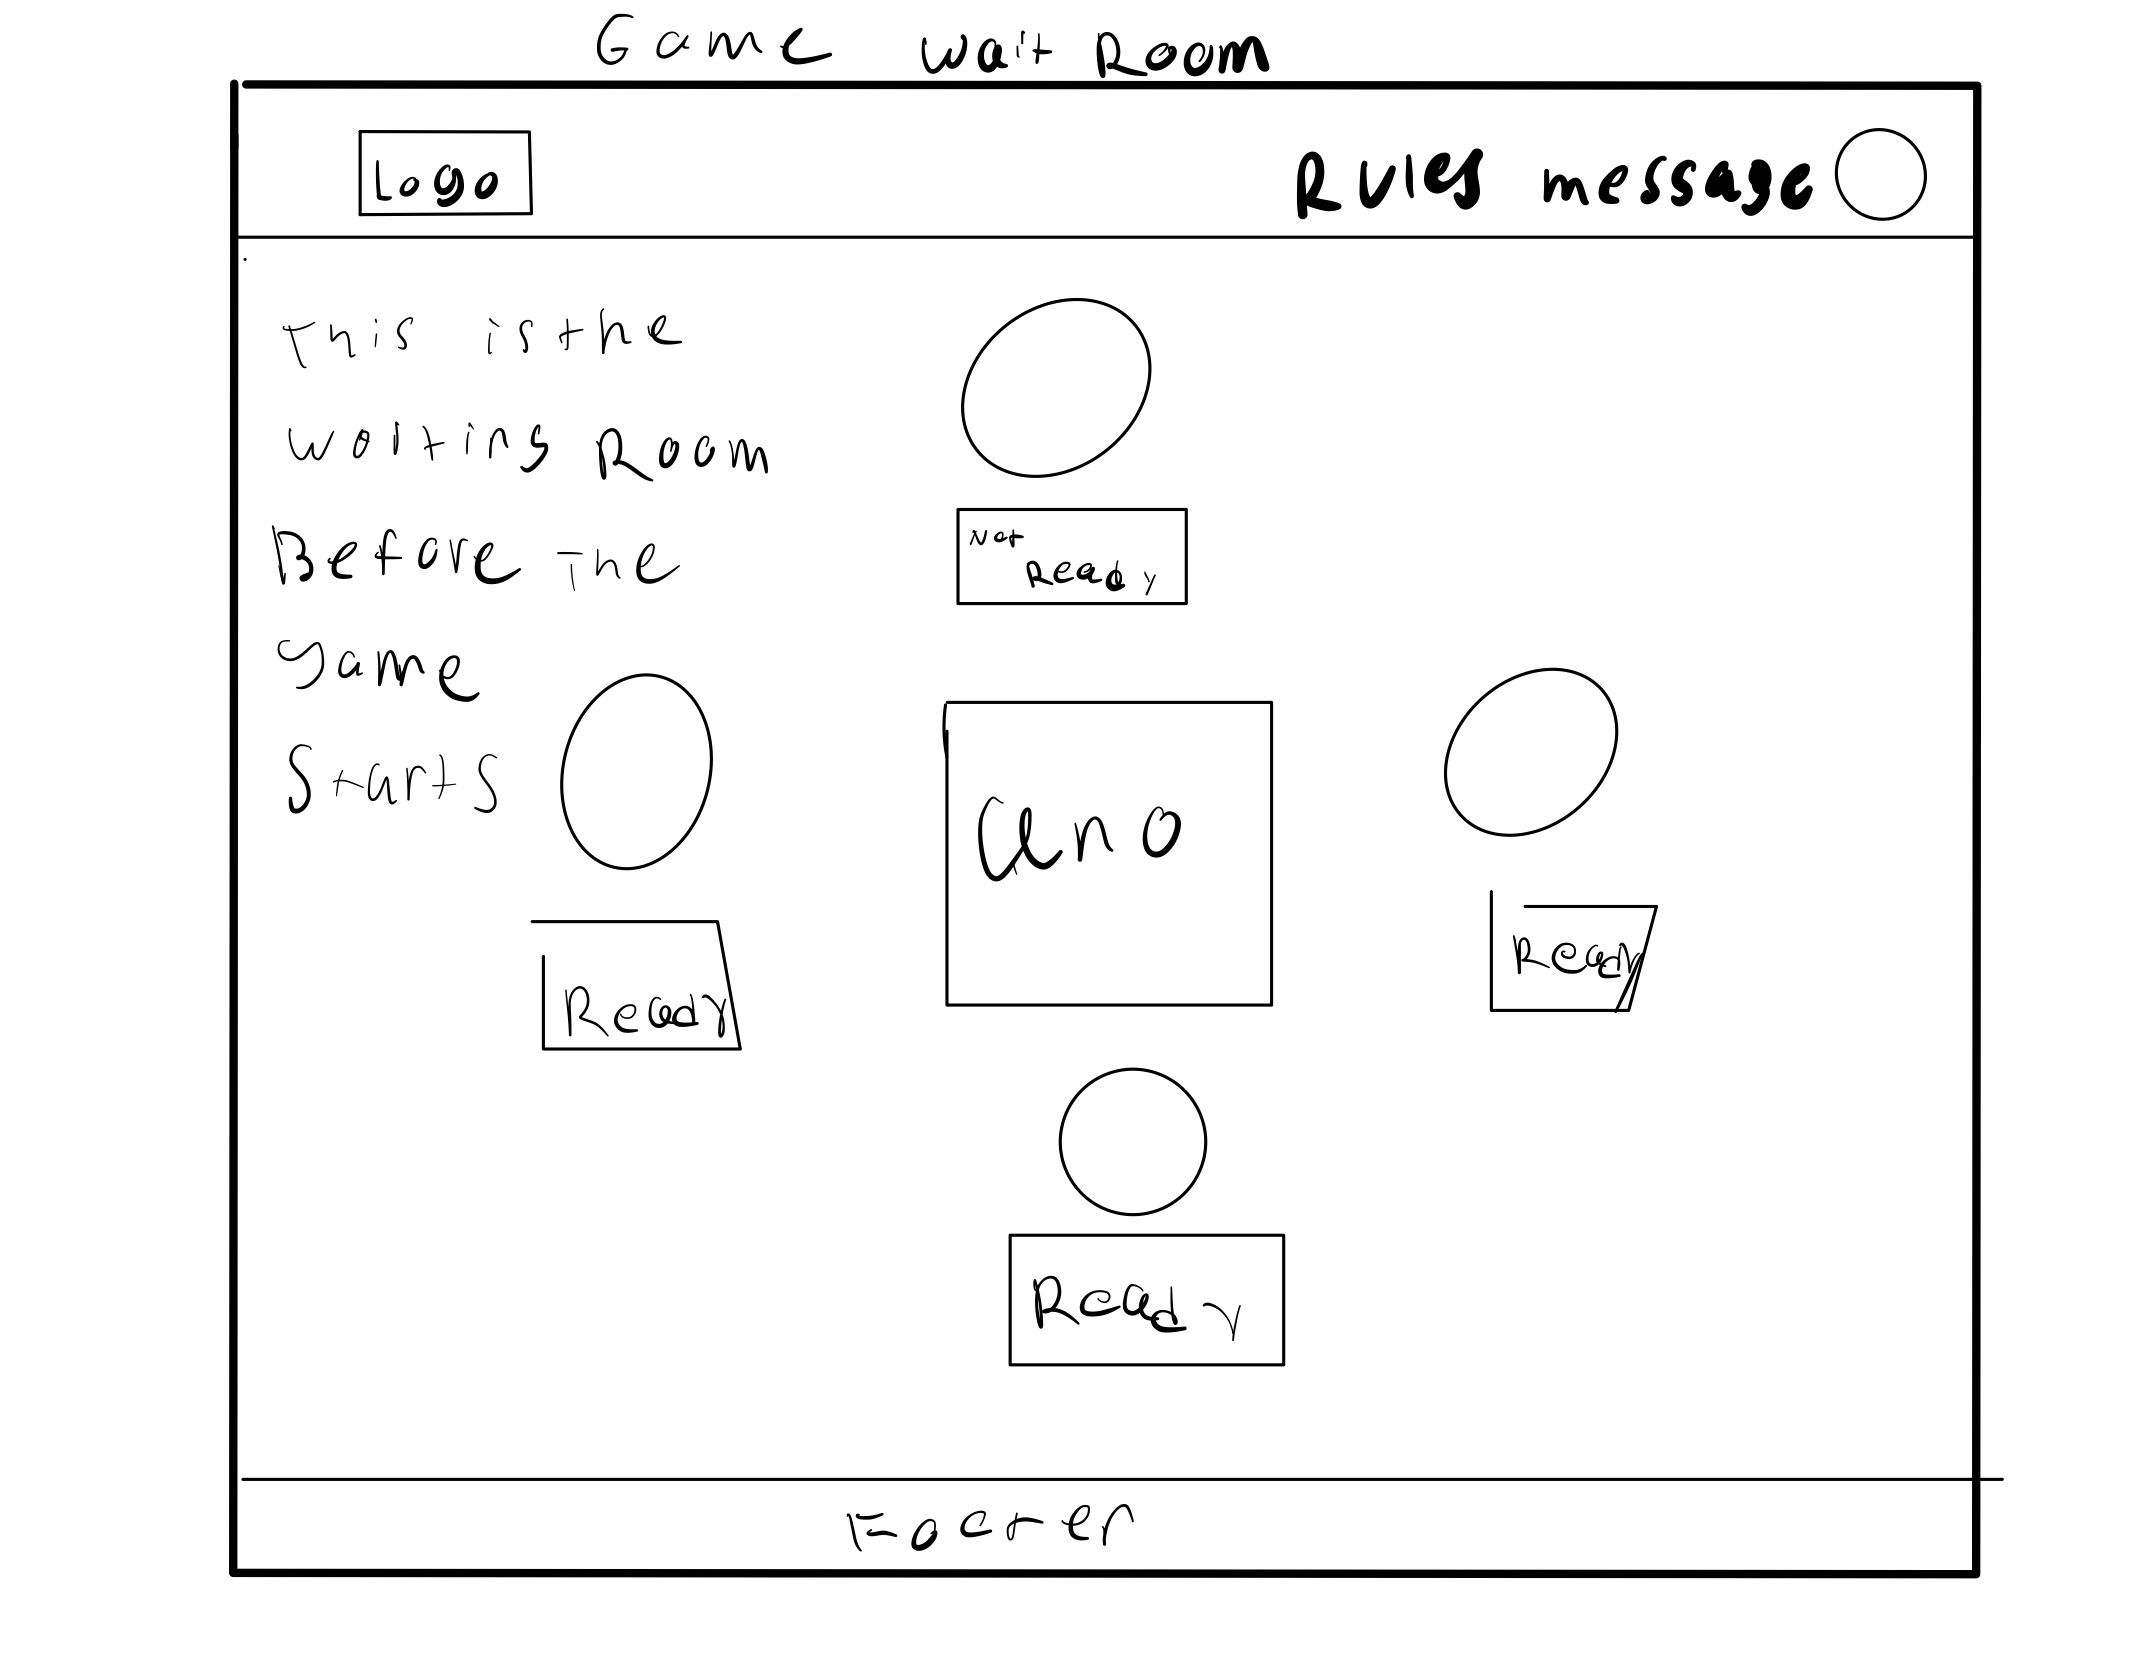 Game wait Room
Logo
Rules message
This is the
waiting Room
Before The
game
Starts
Not
Ready
Uno
Ready
Ready
Ready
Footer